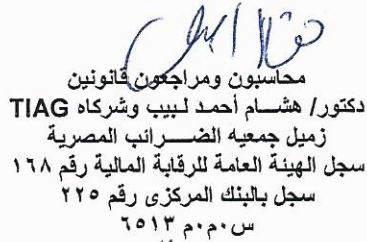 محاسبون ومراجعون قانونين
دكتور/ هشام أحمد لبيب وشركاه TIAG
زميل جمعيه الضرائب المصرية
سجل الهيئة العامة للرقابة المالية رقم ١٦٨
سجل بالبنك المركزى رقم ٢٢٥
س.م.م ٦٥١٣